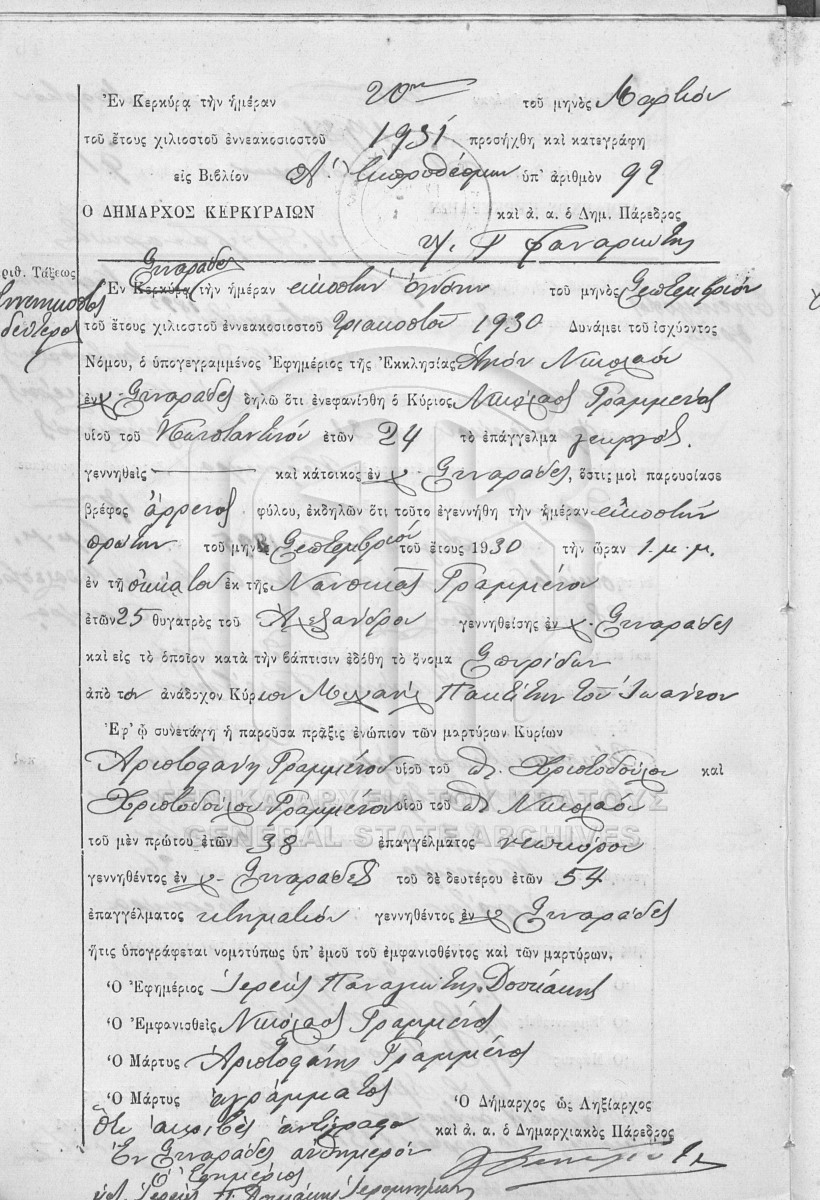 Ἐν Κερκύρᾳ τὴν ἡμέραν 20ην τοῦ μηνὸς Μαρτίου
τοῦ ἔτους χιλιοστοῦ ἐννεακοσιοστοῦ 1931 προσήχθη καὶ κατεγράφη
εἰς Βιβλίον Α΄ Ἐκπροθέσμων ὑπ' ἀριθμὸν 92
Ο ΔΗΜΑΡΧΟΣ ΚΕΡΚΥΡΑΙΩΝ
καὶ ἀ. α. ὁ Δημ. Πάρεδρος
Φαναριώτης
ριθ. Τάξεως
Ἐνενηκοστὸς
δεύτερος
Συναράδες
Ἐν Κερκύρᾳ τὴν ἡμέραν εἰκοστὴν ὀγδόην τοῦ μηνὸς Σεπτεμβρίου
τοῦ ἔτους χιλιοστοῦ ἐννεακοσιοστοῦ τριακοστοῦ 1930 Δυνάμει τοῦ ἰσχύοντος
Νόμου, ὁ ὑπογεγραμμένος Ἐφημέριος τῆς Ἐκκλησίας Ἁγίου Νικολάου
ἐν χ. Συναράδες δηλῶ ὅτι ἐνεφανίσθη ὁ Κύριος Νικόλαος Γραμμένος
υἱοῦ τοῦ Κωνσταντίνου ἐτῶν 24 τὸ ἐπάγγελμα γεωργὸς
γεννηθεὶς καὶ κάτοικος ἐν χ. Συναράδες, ὅστις μοὶ παρουσίασε
βρέφος ἄρρενος φύλου, ἐκδηλῶν ὅτι τοῦτο ἐγεννήθη τὴν ἡμέραν εἰκοστὴν
πρώτην τοῦ μηνὸς Σεπτεμβρίου τοῦ ἔτους 1930 τὴν ὥραν 1 μ.μ.
ἐν τῇ οἰκίᾳ του ἐκ τῆς Γραμμένου
ἐτῶν 25 θυγατρὸς τοῦ Ἀλεξάνδρου γεννηθείσης ἐν χ. Συναράδες
καὶ εἰς τὸ ὁποῖον κατὰ τὴν βάπτισιν ἐδόθη τὸ ὄνομα Σπυρίδων
ἀπὸ τὸν ἀνάδοχον Κύριον Μιχαὴλ τοῦ Ἰωάννου
Ἐφ' ᾧ συνετάγη ἡ παροῦσα πρᾶξις ἐνώπιον τῶν μαρτύρων Κυρίων
Ἀριστοφάνη Γραμμένου υἱοῦ τοῦ Χριστοδούλου καὶ
Χριστοδούλου Γραμμένου υἱοῦ τοῦ Νικολάου
ΓΕΝΙΚΑ ΑΡΧΕΙΑ ΤΟΥ ΚΡΑΤΟΥΣ
GENERAL STATE ARCHIVES
τοῦ μὲν πρώτου ἐτῶν 38 ἐπαγγέλματος νεωκόρου
γεννηθέντος ἐν χ. Συναράδες τοῦ δὲ δευτέρου ἐτῶν 54
ἐπαγγέλματος κτηματίου γεννηθέντος ἐν χ. Συναράδες
ἥτις ὑπογράφεται νομοτύπως ὑπ' ἐμοῦ τοῦ ἐμφανισθέντος καὶ τῶν μαρτύρων.
Ὁ Ἐφημέριος Ἱερεὺς Παναγιώτης Δουκάκης
Ὁ Ἐμφανισθεὶς Νικόλαος Γραμμένος
Ὁ Μάρτυς Ἀριστοφάνης Γραμμένος
Ὁ Μάρτυς ἀγράμματος
Ὁ Δήμαρχος ὡς Ληξίαρχος
Ὅτι ἀκριβὲς ἀντίγραφο
καὶ ἀ. α. ὁ Δημαρχιακὸς Πάρεδρος
Ἐν Συναράδες αὐθημερόν
Ὁ Ἐφημέριος